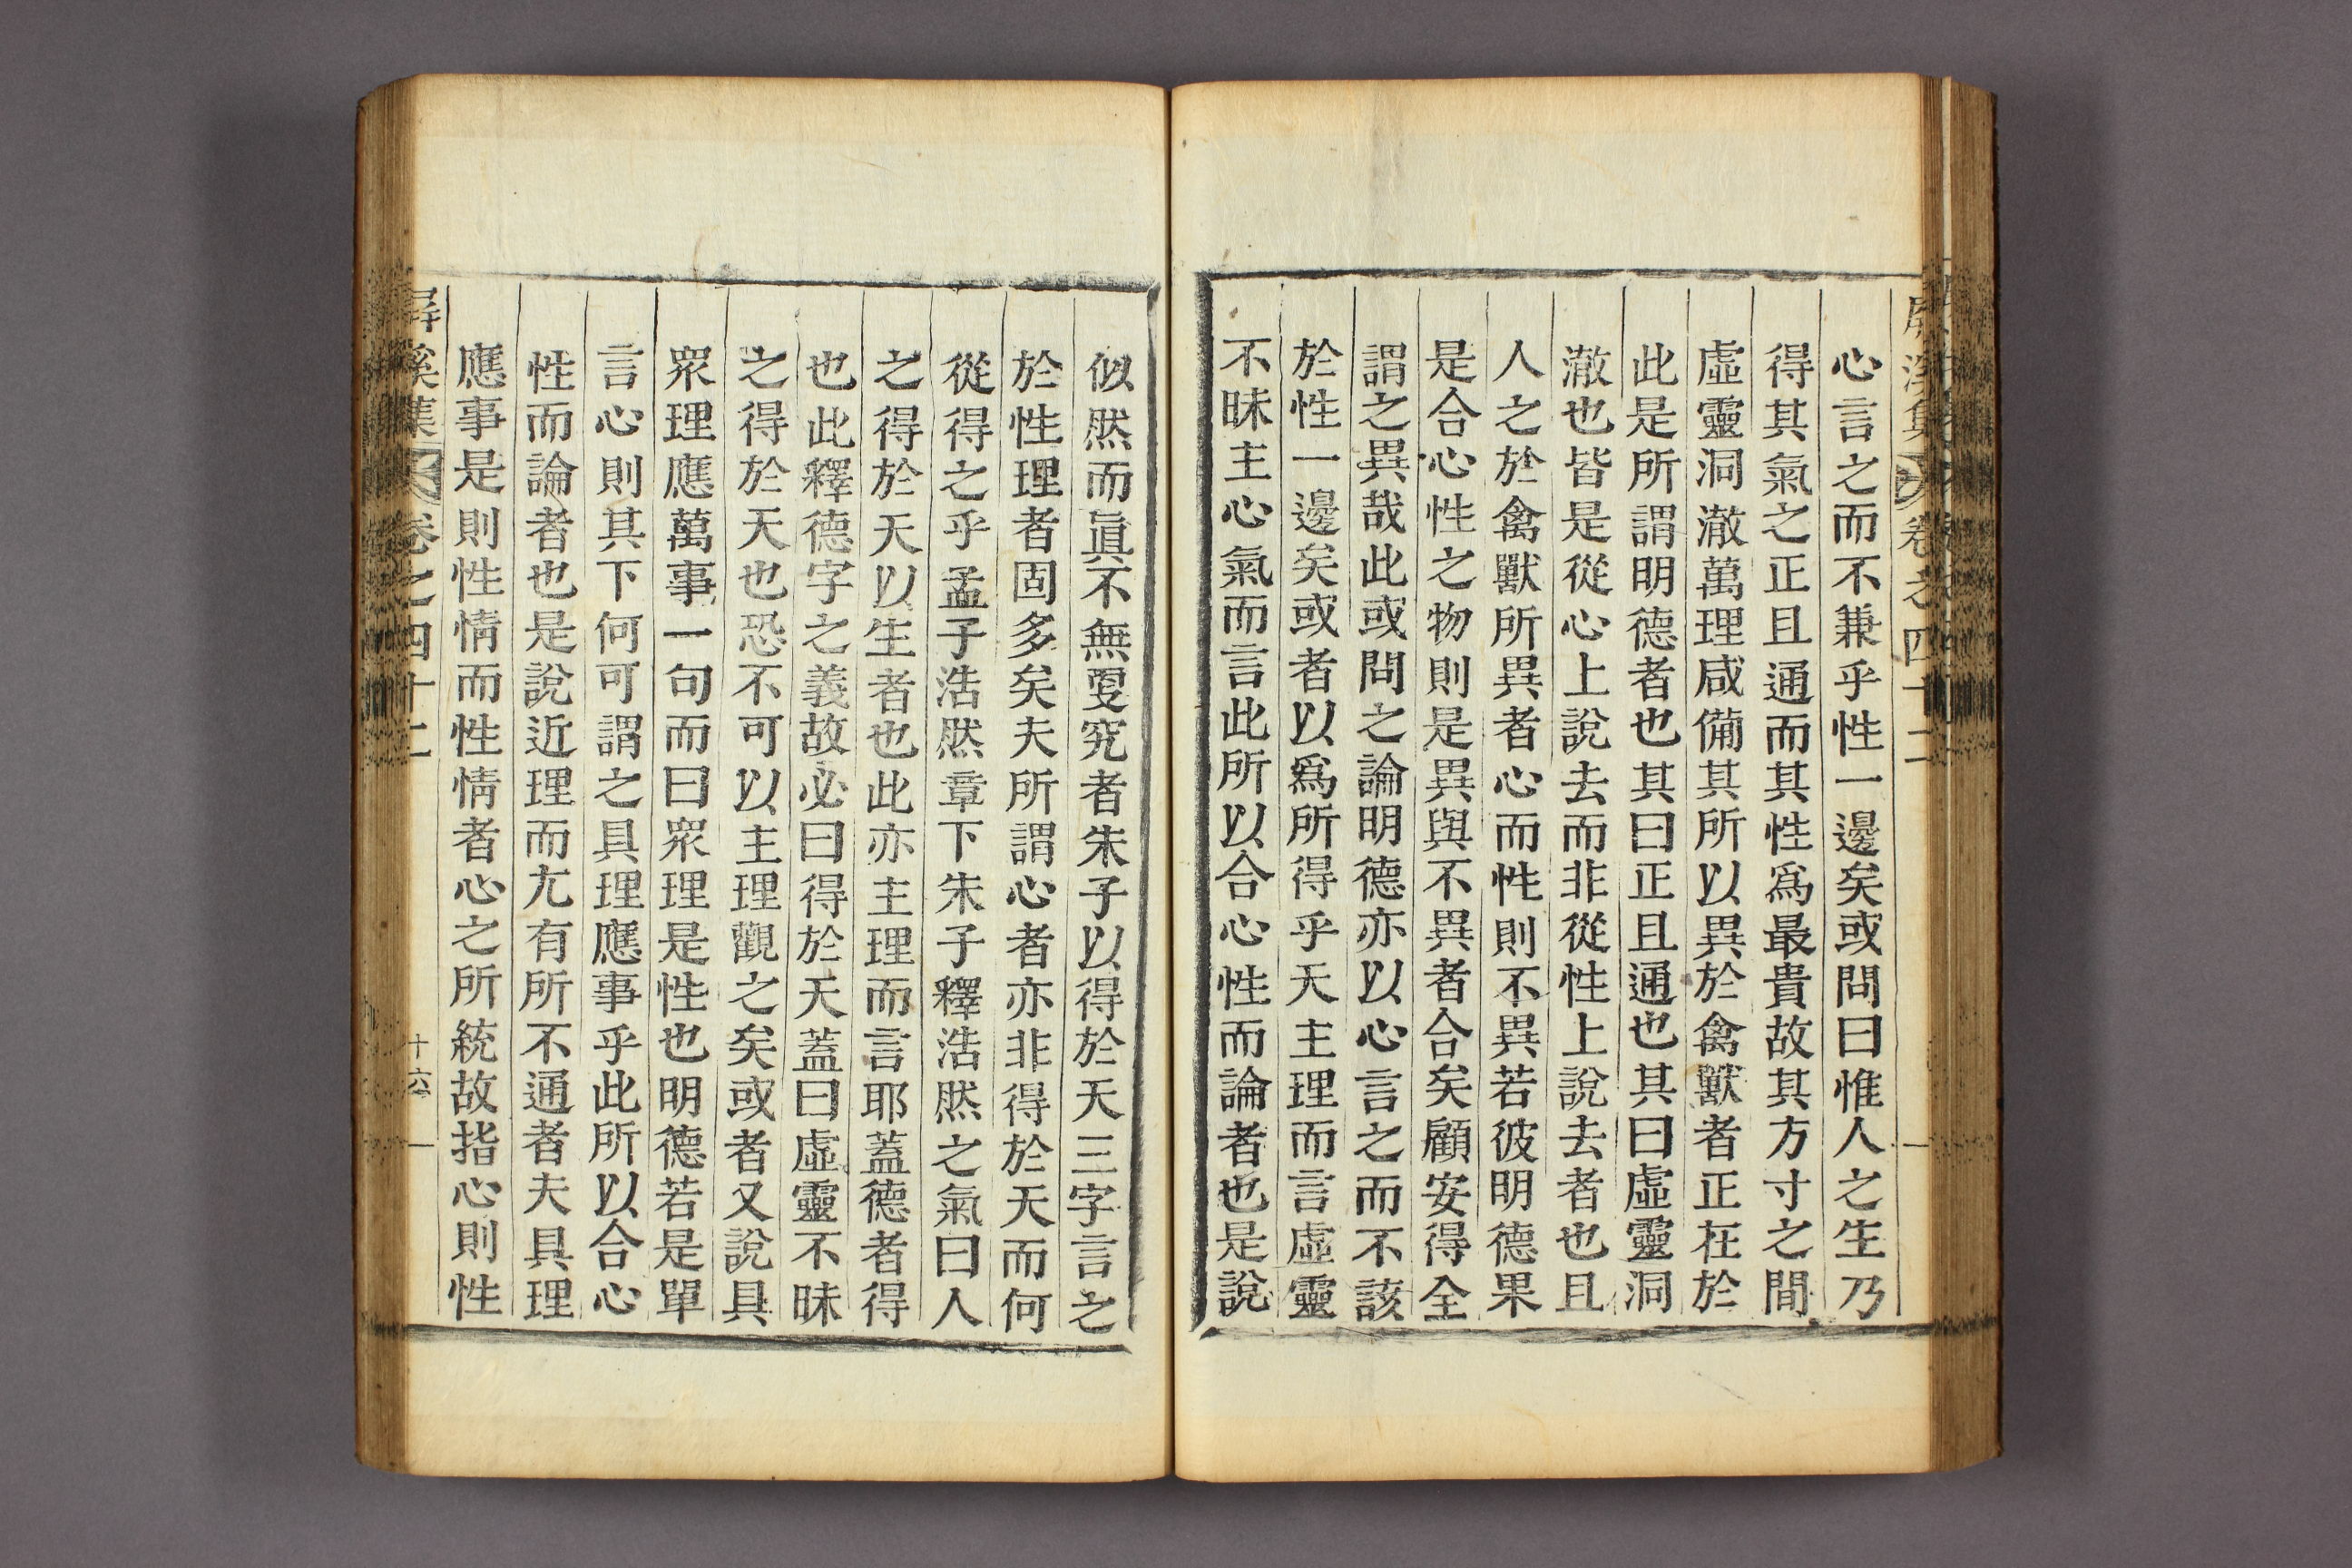 屛溪集 卷之四十二
心言之而不兼乎性一邊矣或問曰惟人之生乃
得其氣之正且通而其性爲最貴故其方寸之間
虛靈洞澈萬理咸備其所以異於禽獸者正在於
此是所謂明德者也其曰正且通也其曰虛靈洞
澈也皆是從心上說去而非從性上說去者也且
人之於禽獸所異者心而性則不異若彼明德果
是合心性之物則是異與不異者合矣顧安得全
謂之異哉此或問之論明德亦以心言之而不該
於性一邊矣或者以爲所得乎天主理而言虛靈
不昧主心氣而言此所以合心性而論者也是說
似然而眞不無更究者朱子以得於天三字言之
於性理者固多矣夫所謂心者亦非得於天而何
從得之乎孟子浩然章下朱子釋浩然之氣曰人
之得於天以生者也此亦主理而言耶蓋德者得
也此釋德字之義故必曰得於天蓋曰虛靈不昧
之得於天也恐不可以主理觀之矣或者又說具
衆理應萬事一句而曰衆理是性也明德若是單
言心則其下何可謂之具理應事乎此所以合心
性而論者也是說近理而尤有所不通者夫具理
應事是則性情而性情者心之所統故指心則性
屛溪集 卷之四十二 十六